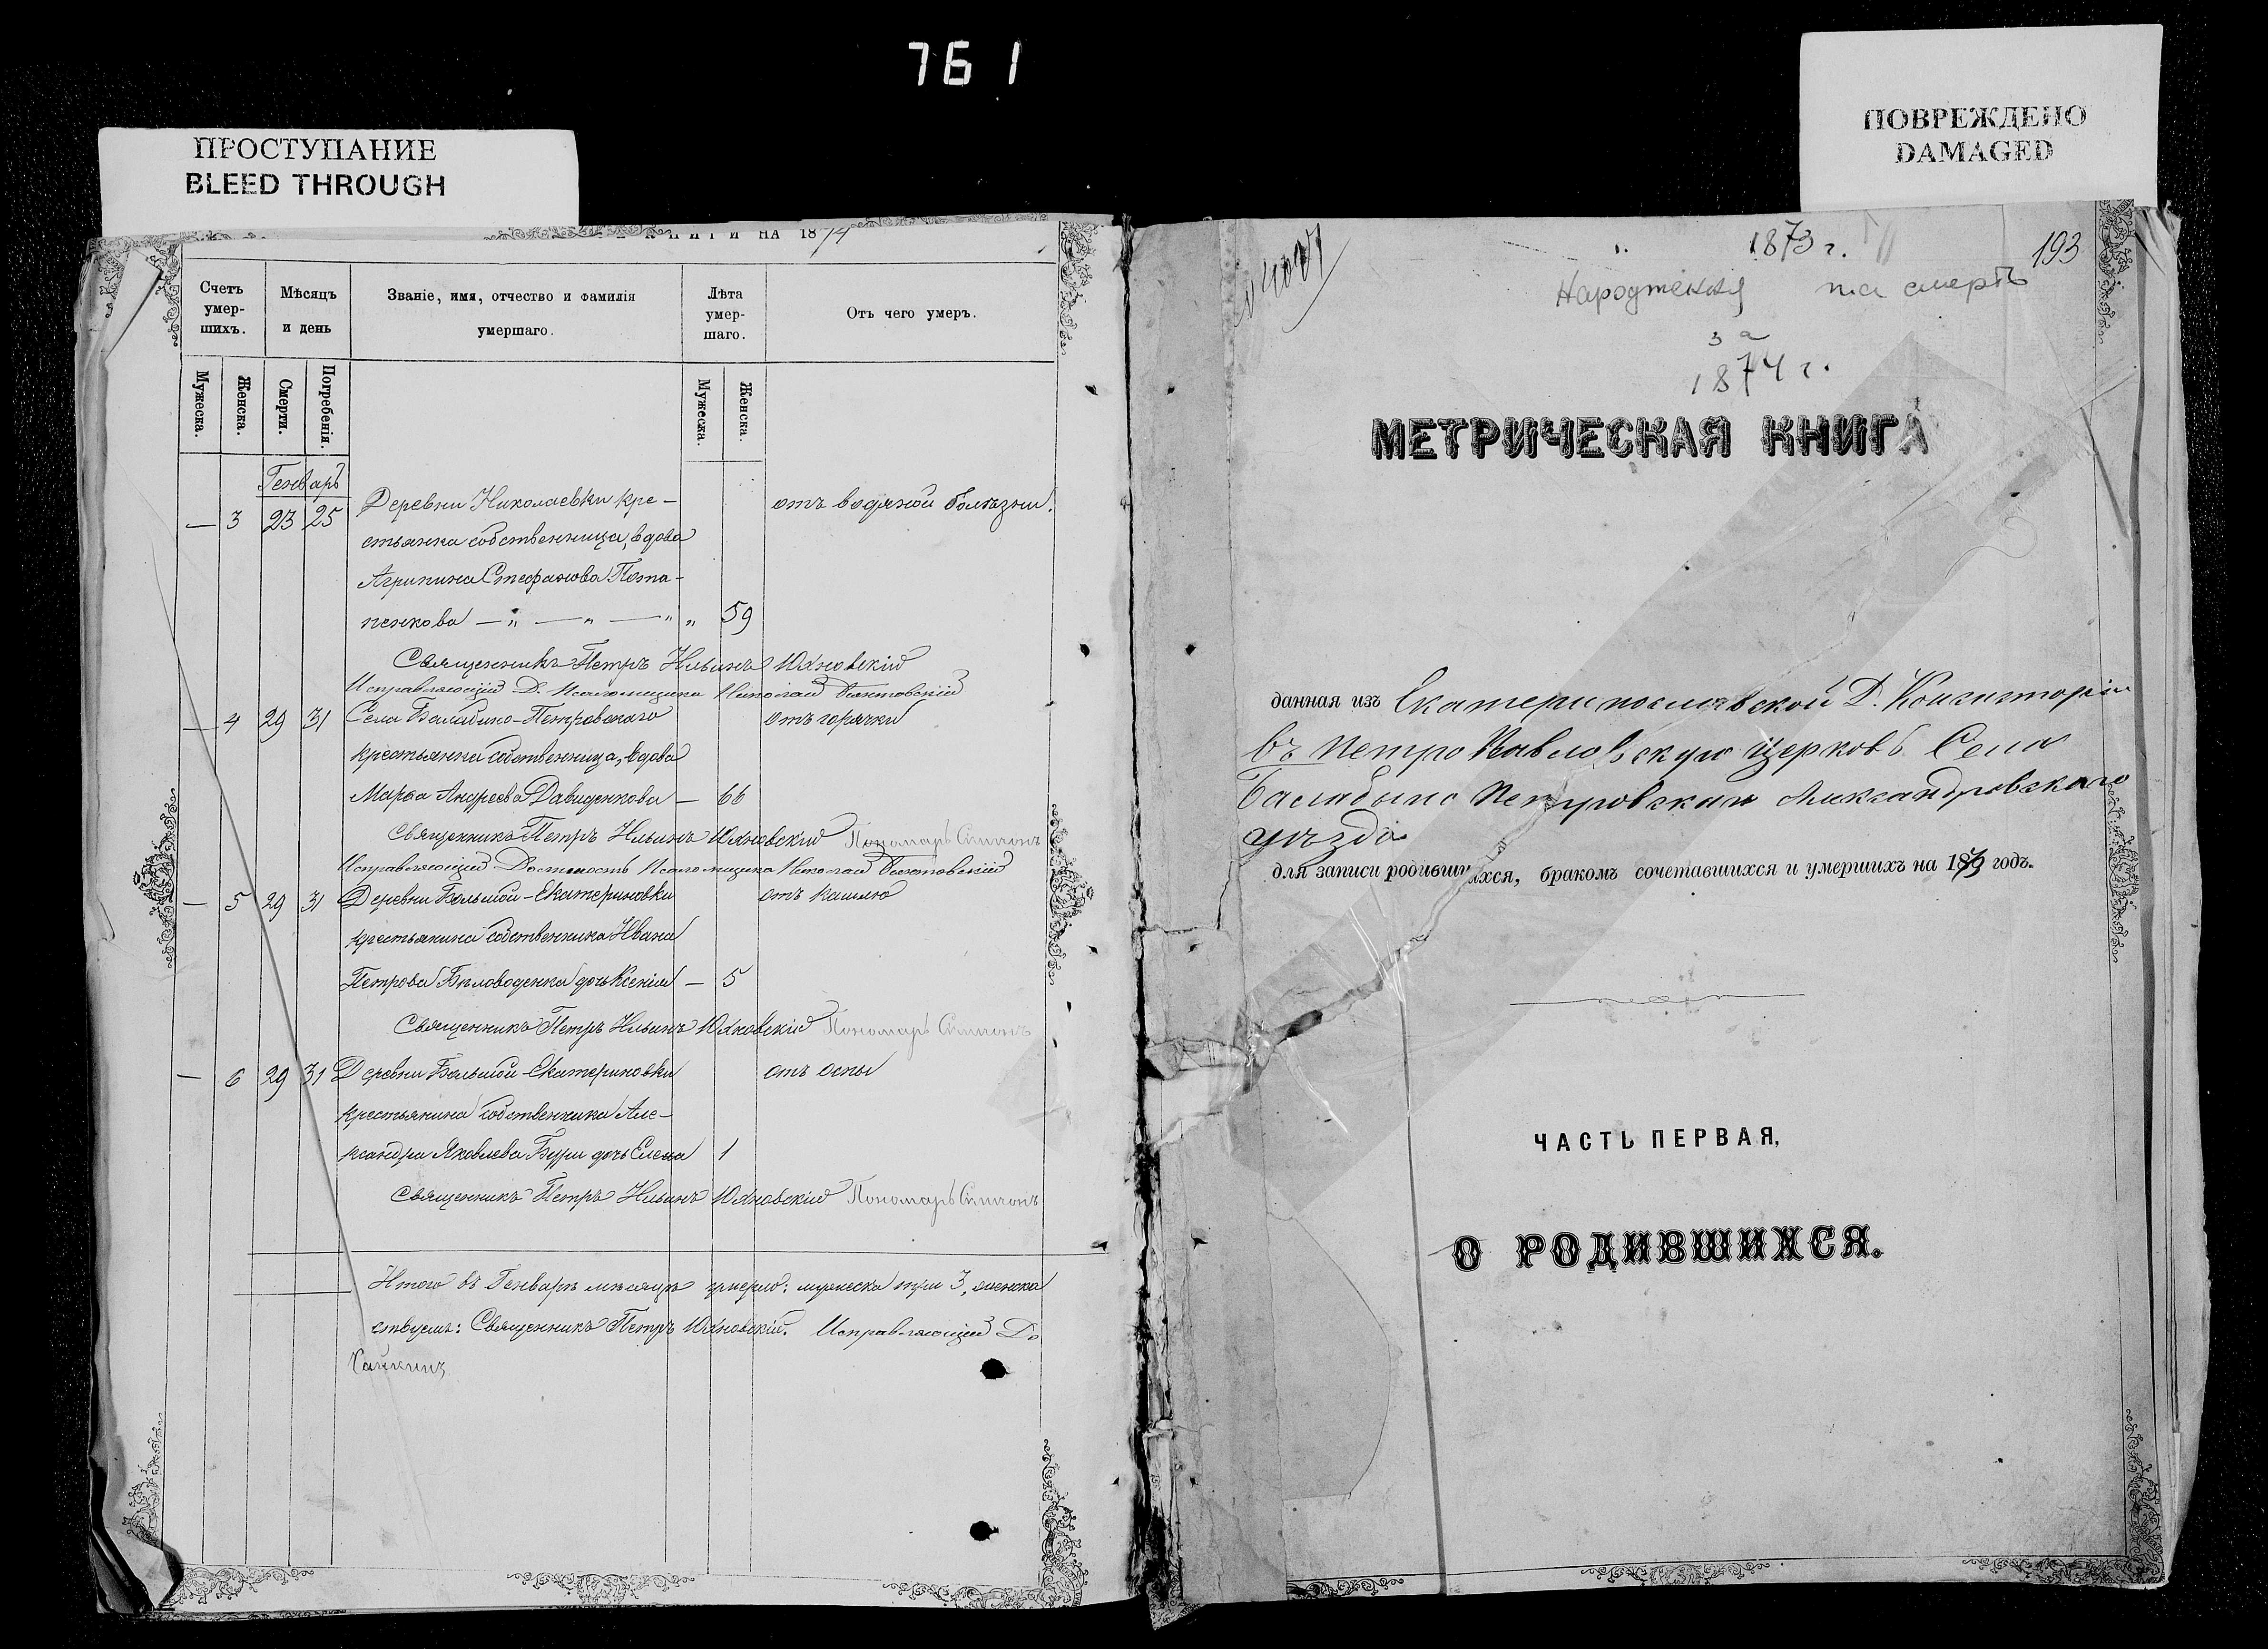 761
ПРОСТУПАНИЕ
BLEED THROUGH
ПОВРЕЖДЕНО
DAMAGED
КНИГИ НА 1874
Счетъ умер-шихъ.
Мѣсяцъ и день
Званіе, имя, отчество и фамилія умершаго.
Лѣта умер-шаго.
Отъ чего умеръ.
Мужеска.
Женска.
Смерти.
Погребенія.
Мужеска.
Женска.
Генварь
— 3 23 25 Деревни Николаевки кре- отъ водяной болѣзни.
стьянка собственница, вдова
Агрипина Стефанова Пота-
пенкова — „ — „ — „ „ 59
Священникъ Петръ Ильинъ Юхновскій
Исправляющій Д. Псаломщика Николай
— 4 29 31 Села Балабино-Петровскаго отъ горячки
крестьянка собственница, вдова
Марѳа Андреева Давиденкова — 66
Священникъ Петръ Ильинъ Юхновскій Пономарь Симеонъ
Исправляющій Должность Псаломщика Николай
— 5 29 31 Деревни Большой-Екатериновки отъ кашлю
крестьянина собственника Ивана
Петрова Бѣловоденка дочь Ксенія — 5
Священникъ Петръ Ильинъ Юхновскій Пономарь Симеонъ
— 6 29 31 Деревни Большой-Екатериновки отъ оспы
крестьянина собственника Але-
ксандра Яковлева дочь Елена 1
Священникъ Петръ Ильинъ Юхновскій Пономарь Симеонъ
Итого въ Генварѣ мѣсяцѣ умерло: мужеска три 3, женска
Священникъ Петръ Юхновскій. Исправляющій До
1873 г.
193
Народження та смерть
за
1874 г.
МЕТРИЧЕСКАЯ КНИГА
данная изъ Екатеринославской Д. Консисторіи
въ Петро Павловскую Церковь Села
Балабино Петровскаго Александровскаго
уѣзда
для записи родившихся, бракомъ сочетавшихся и умершихъ на 1873 годъ.
ЧАСТЬ ПЕРВАЯ,
О РОДИВШИХСЯ.